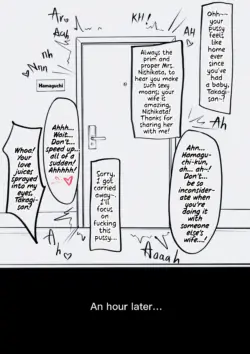 Ar..
Auh
KH!
AH
Oh——
your
pussy
feels
like
home
ever
since
you've
had a
baby,
Takagi-
san~!
nh
Nnn
Hamaguchi
Always
the
prim and
proper Mrs.
Nishikata,
to hear you
make such
sexy
moans, your
wife is
amazing,
Nishikata!
Thanks for
sharing her
with me!
Ah
Ahhh...
Wait...
Don't...
speed up...
all of a
sudden!
Ahhhhh!
Whoa!
Your
love
juices
sprayed
into my
eyes,
Takagi-
san!
Sorry,
I got
carried
away~
I'll
focus
on
fucking
this
pussy...
Ahn...
Hamagu-
chi-kun,
ah... ah~!
Don't...
be so
inconsid-
erate
when
you're
doing it
with
someone
else's
wife...!
Ah
Aaaah
An hour later...